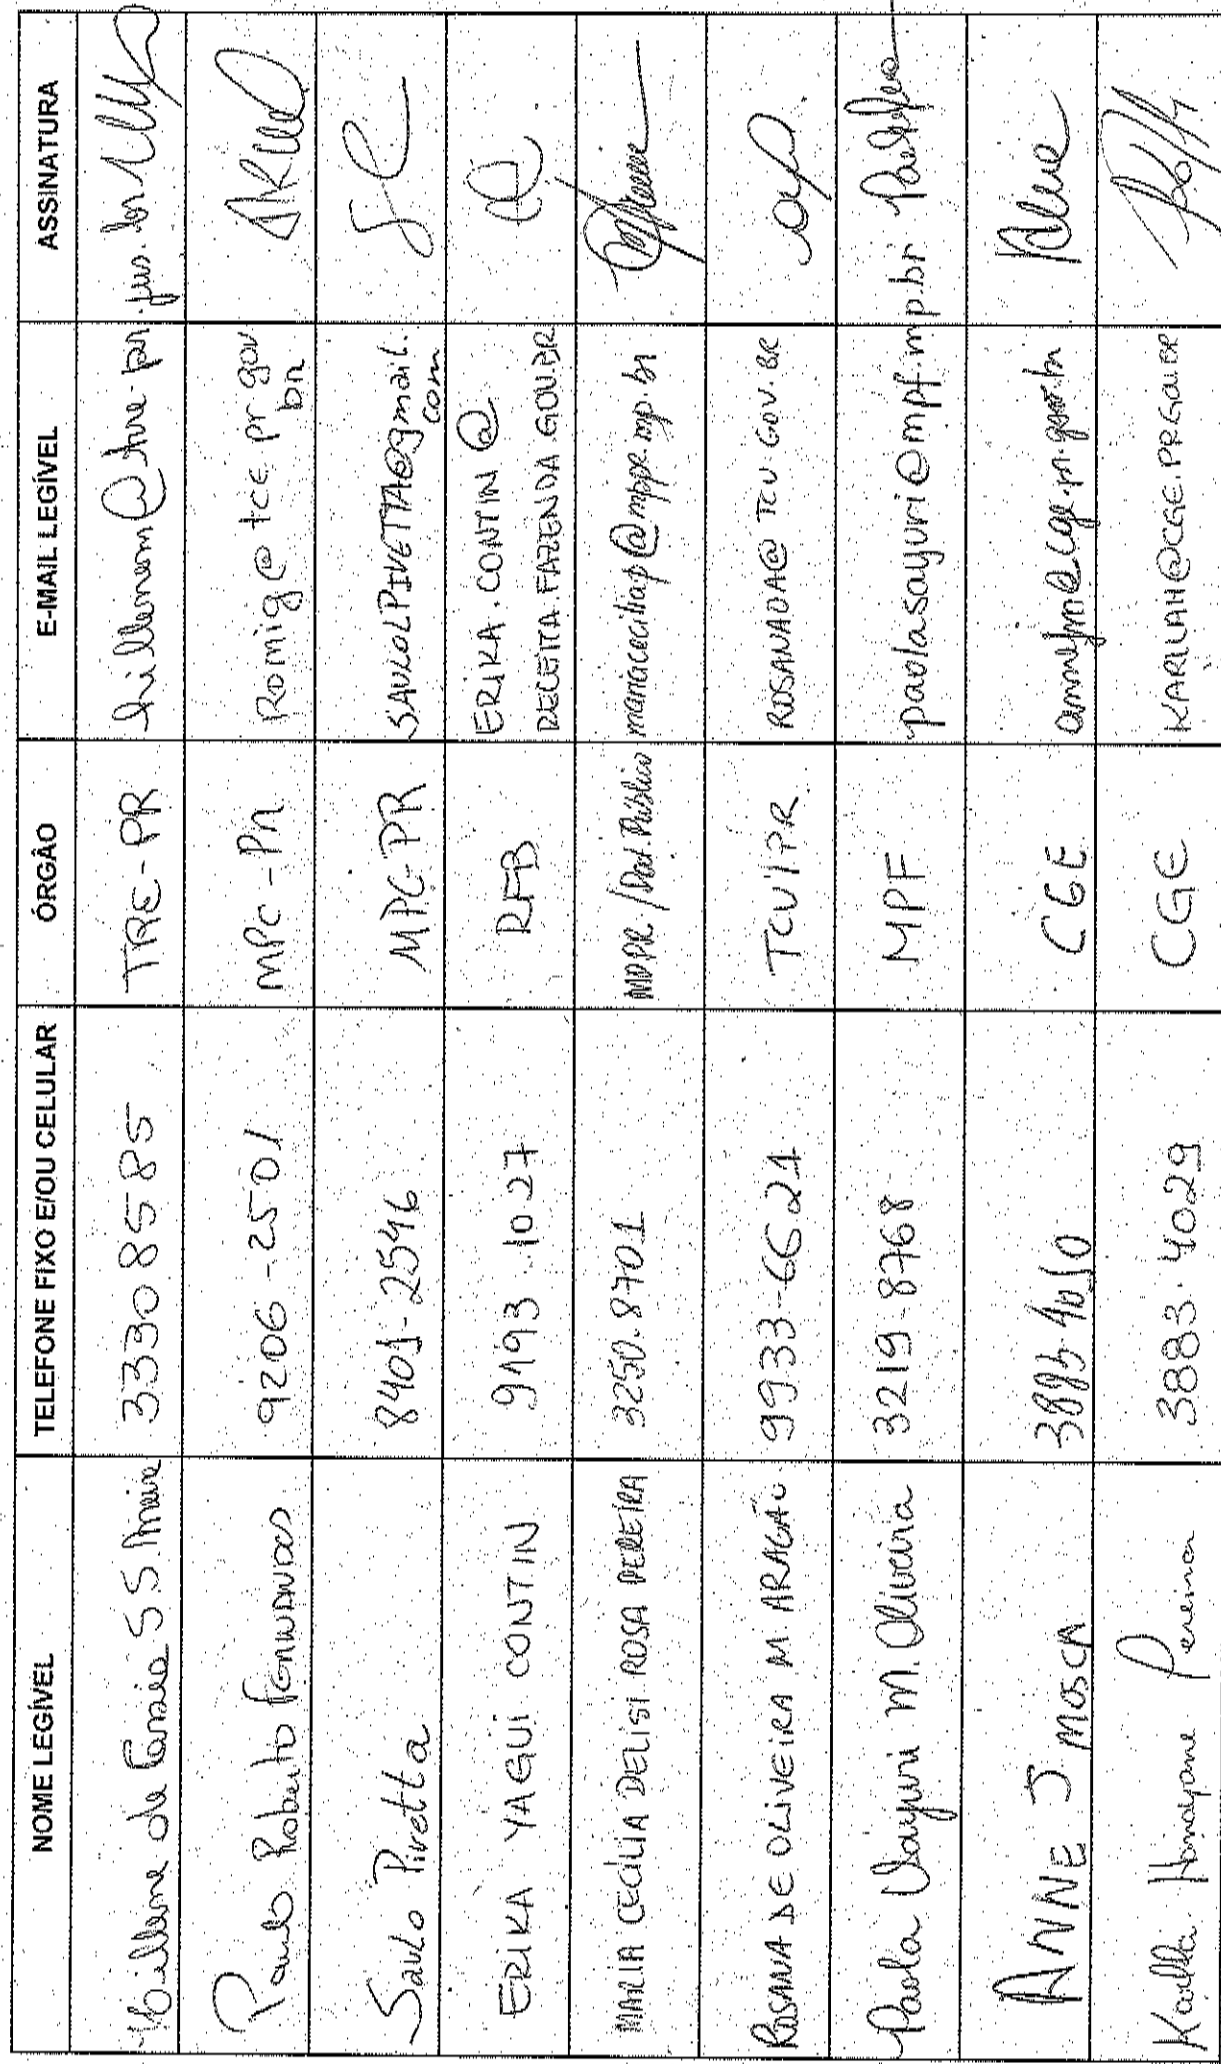 NOME LEGÍVEL TELEFONE FIXO E/OU CELULAR ÓRGÃO E-MAIL LEGÍVEL ASSINATURA
de Cassia S S 3330 8585 TRE-PR jus.br
Paulo Roberto Fernandes 9206-2501 MPC-PR Romig@tce.pr.gov
br
Saulo Pivetta 8401-2546 MPC-PR SAULOLPIVETTA@gmail.
com
ERIKA YAGUI CONTIN 9193.1027 RFB ERIKA.CONTIN@
RECEITA.FAZENDA.GOV.BR
MARIA CECÍLIA DELISI ROSA PEREIRA 3250.8701 MPPR/Pat. Público mariaceciliap@mppr.mp.br
ROSANA DE OLIVEIRA M. ARAGÃO 9933-6621 TCU/PR ROSANAOA@TCU.GOV.BR
Paola Sayuri M. Oliveira 3219-8768 MPF paolasayuri@mpf.mp.br
ANNE J MOSCA CGE Anne
Karlla Pereira 3883.4029 CGE KARLLAH@CGE.PR.GOV.BR